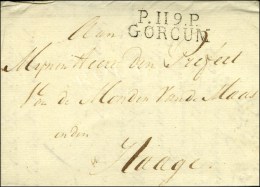 P.119.P.
GORCUM
Aan
Mynheere den Préfect
Van de Monden van de Maas
in den
Haage